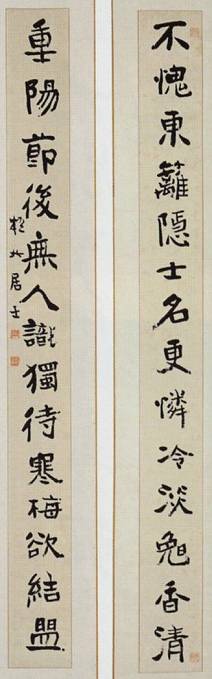 不愧東籬隱士名更憐冷淡晚香清
重陽節後無人識獨待寒梅欲結盟
居士